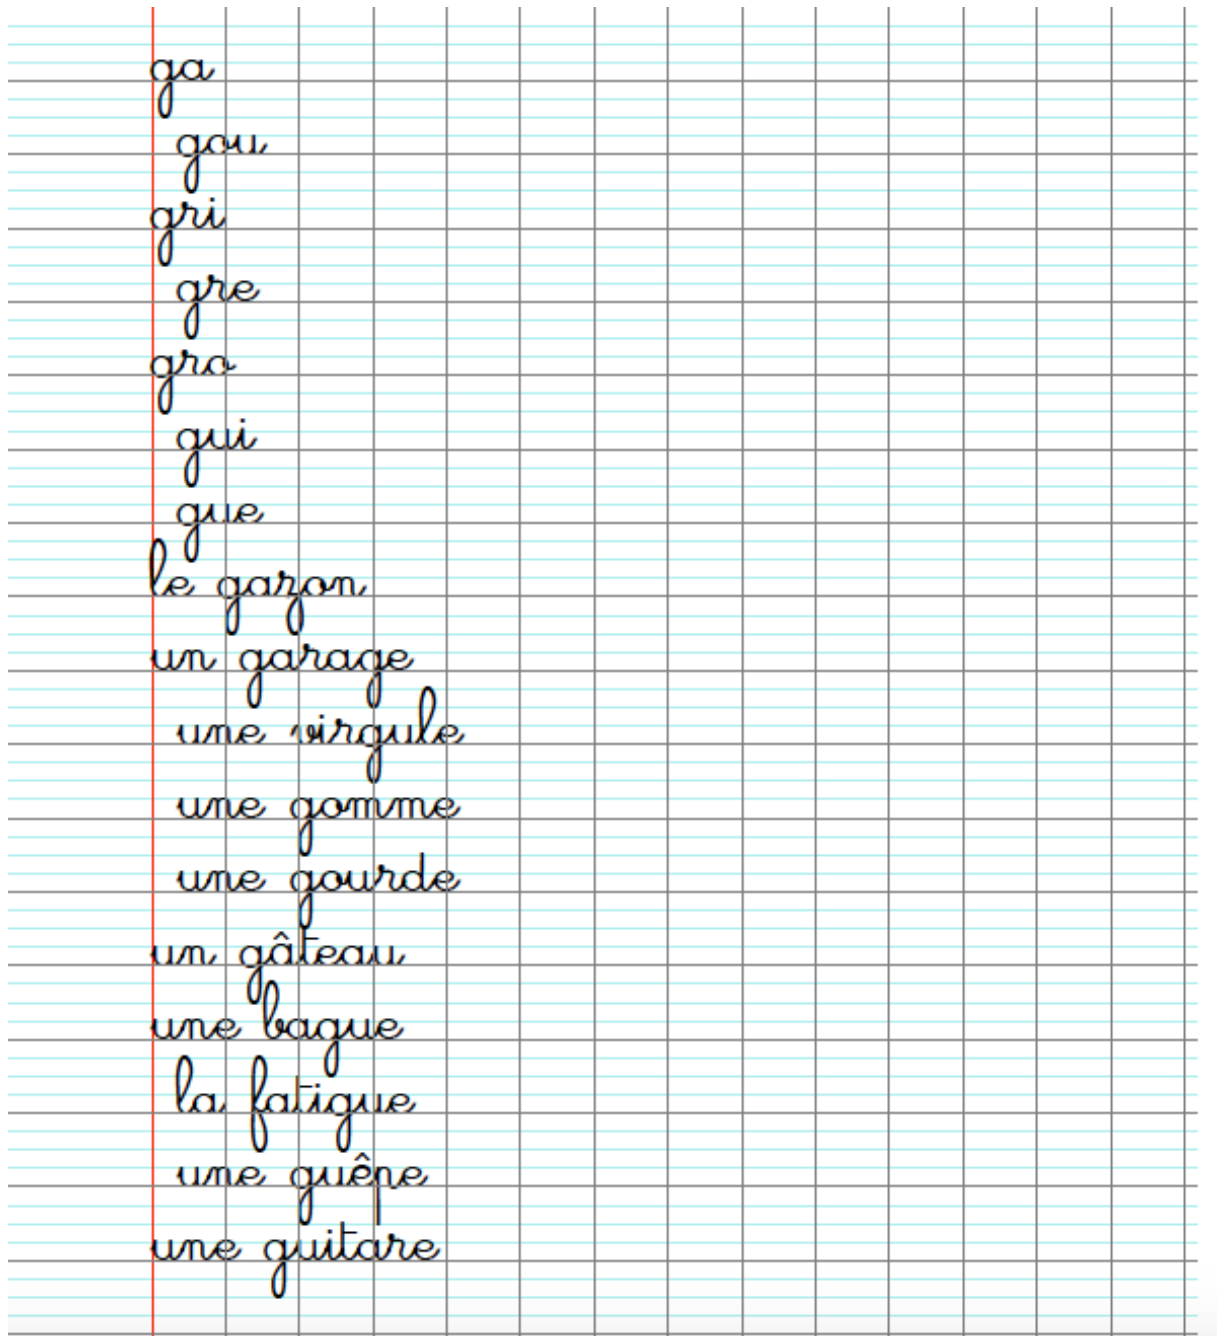 ga
gou
gri
gre
gro
gui
gue
le gazon
un garage
une virgule
une gomme
une gourde
un gâteau
une bague
la fatigue
une guêpe
une guitare